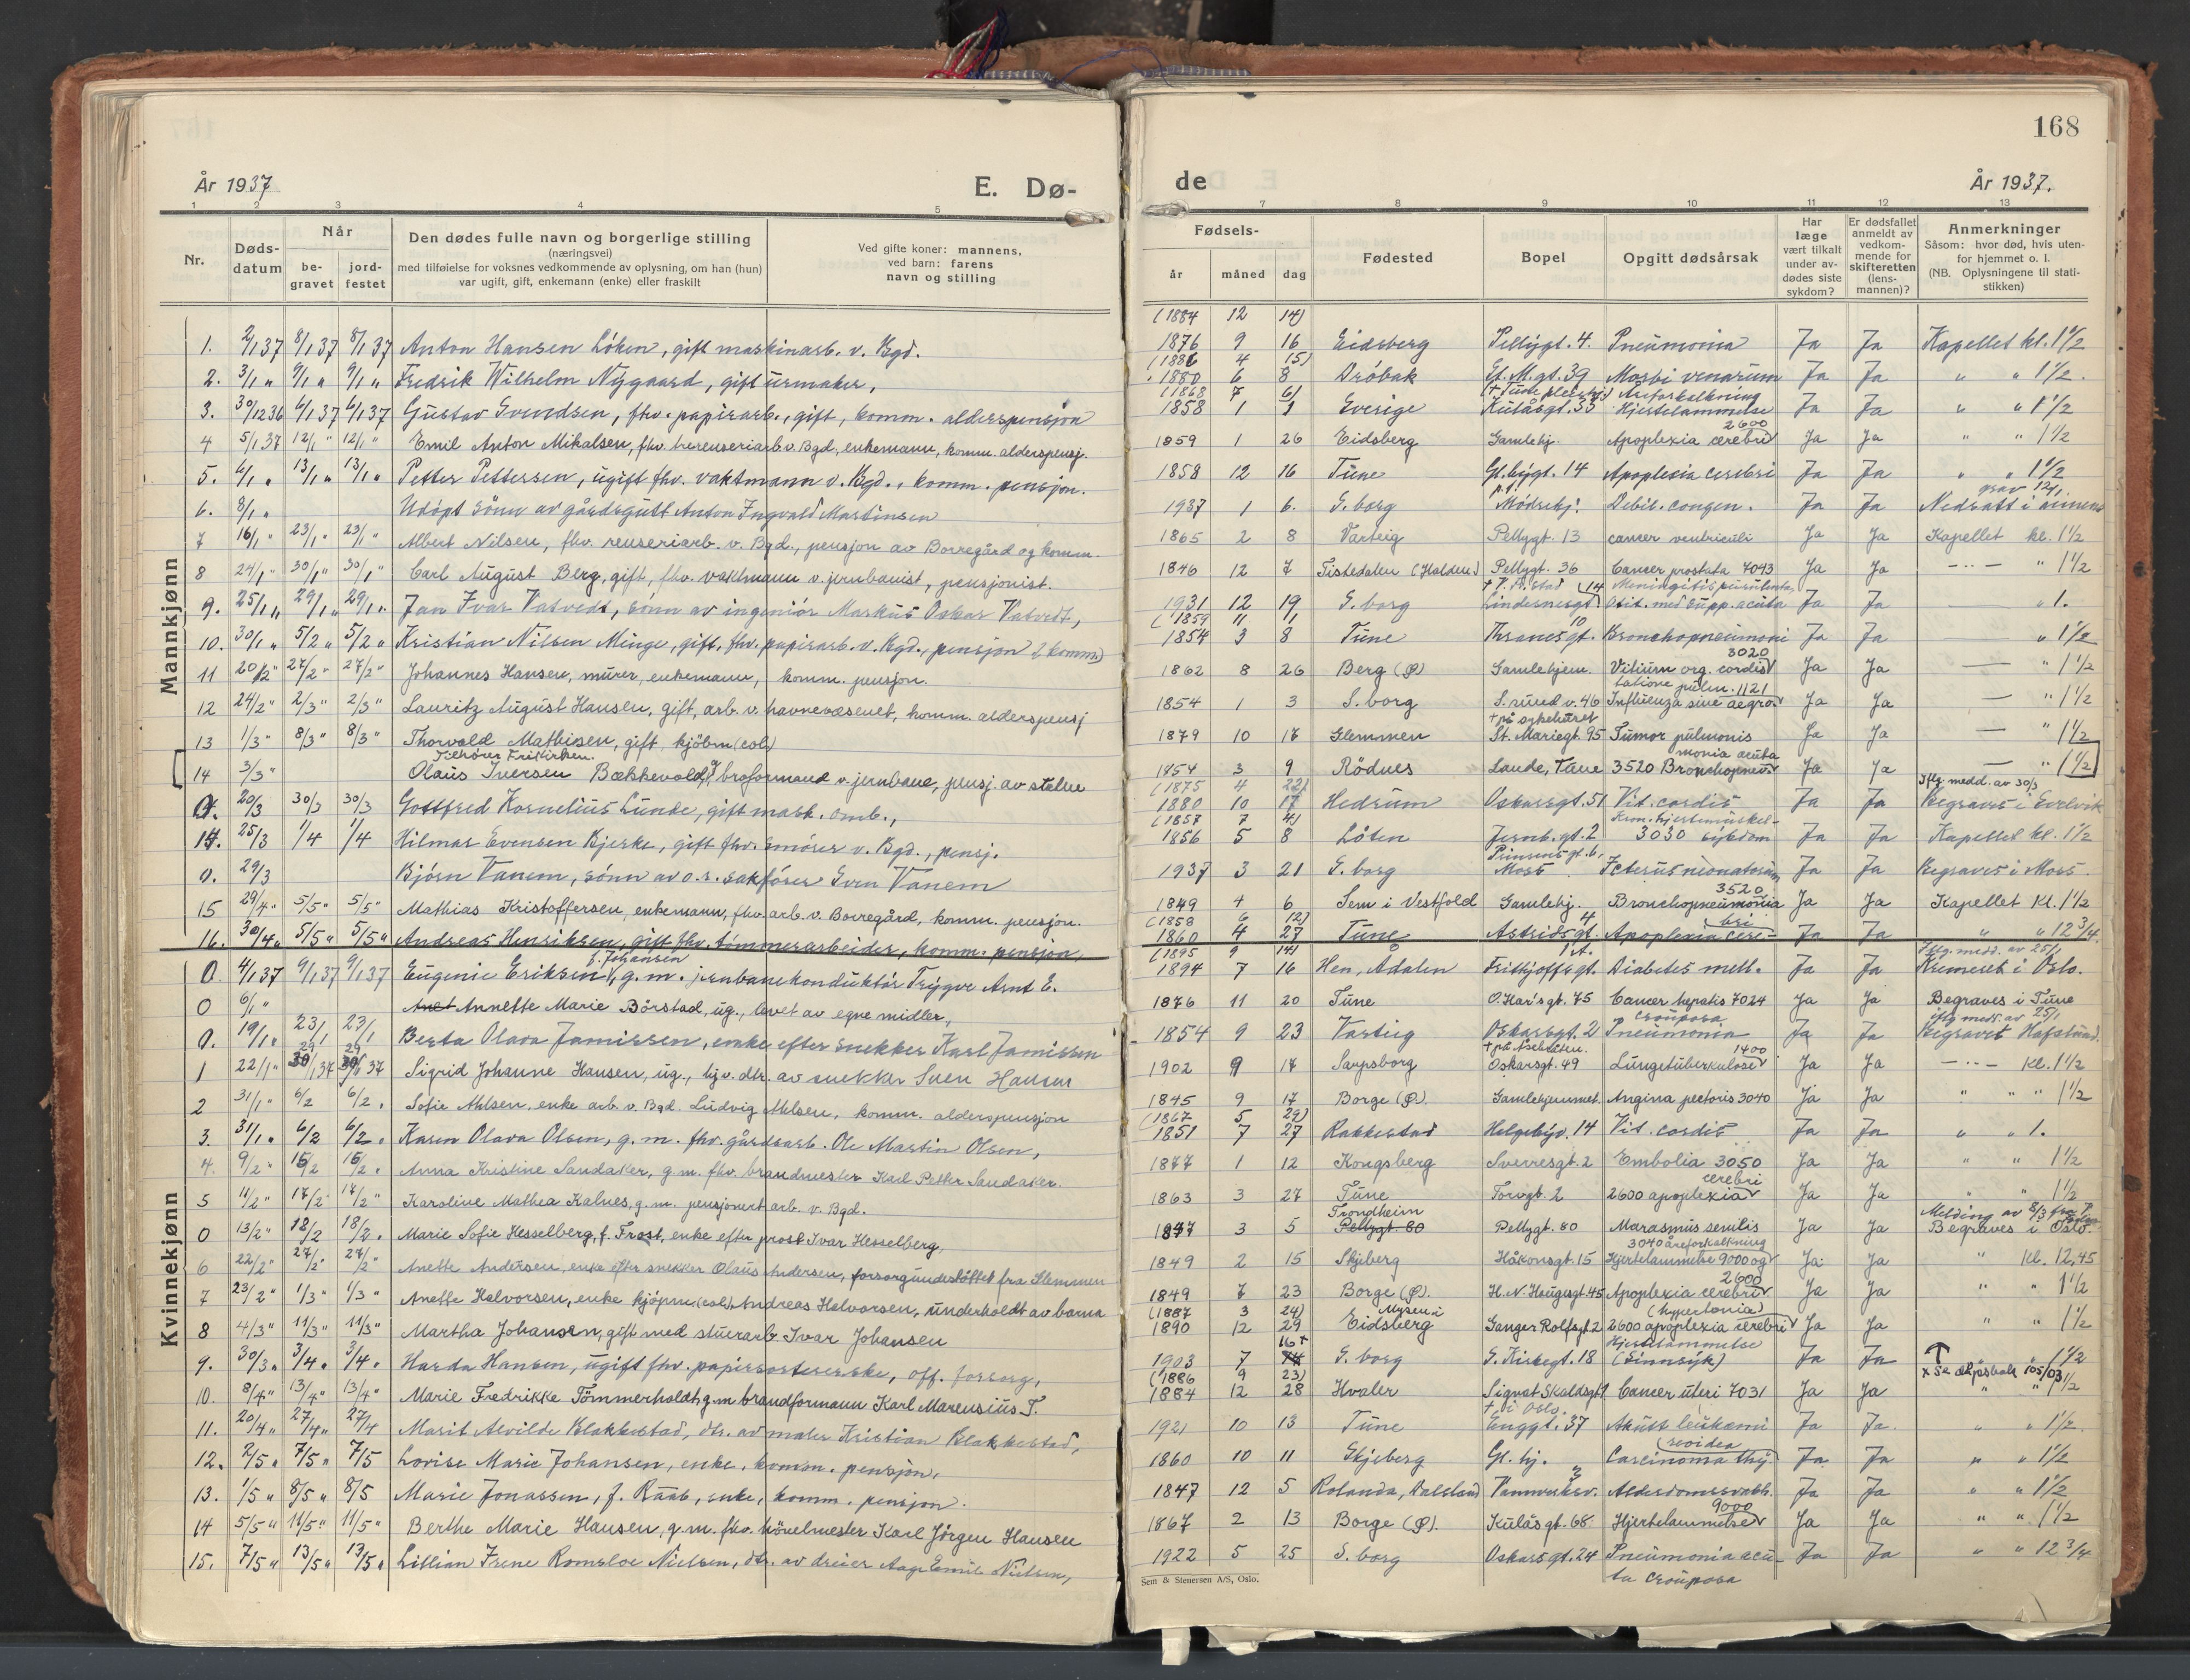 168
År 1937
E. Dø-
de
År 1937.
1 2 3 4 5 7 8 9 10 11 12 13
Nr.
Døds-
datum
Når
be-
gravet
jord-
festet
Den dødes fulle navn og borgerlige stilling
(næringsvei)
med tilføielse for voksnes vedkommende av oplysning, om han (hun)
var ugift, gift, enkemann (enke) eller fraskilt
Ved gifte koner: mannens,
ved barn: farens
navn og stilling
Fødsels-
år måned dag
Fødested
Bopel
Opgitt dødsårsak
Har
læge
vært tilkalt
under av-
dødes siste
sykdom?
Er dødsfallet
anmeldt av
vedkom-
mende for
skifteretten
(lens-
mannen)?
Anmerkninger
Såsom: hvor død, hvis uten-
for hjemmet o. l.
(NB. Oplysningene til stati-
stikken)
Mannkjønn
(1884 12 14)
1. 2/1 37 8/1 37 8/1 37 Anton Hansen Löken, gift maskinarb. v. Bgd. 1876 9 16 Eidsberg Pellygt. 4. Pneumonia Ja Ja Kapellet kl. 1 1/2
(1886 4 15)
2. 3/1 " 9/1 " 9/1 " Fredrik Wilhelm Nygaard, gift urmaker, 1880 6 8 Dröbak Gl. M.gt. 39 Morbi venarum Ja Ja " " 1 1/2.
(1868 7 6) Åreforkalkning
3. 30/12 36 6/1 37 6/1 37 Gustav Svendsen, fhv. papirarb., gift, komm. alderspensjon 1858 1 1 Sverige Kulåsgt. 35 Hjertelammelse Ja Ja " " 1 1/2
2600
4 5/1 37 12/1 " 12/1 " Emil Anton Mikalsen, fhv. træsuseriarb. v. Bgd., enkemann, komm. alderspensj. 1859 1 26 Eidsberg Gamlehj. Apoplexia cerebri Ja Ja " " 1 1/2
5. 6/1 " 13/1 " 13/1 " Petter Pettersen, ugift fhv. vaktmann v. Bgd., komm. pensjon. 1858 12 16 Tune Gl. bygt. 14 Apoplexia cerebri Ja Ja " " 1 1/2
6. 8/1 " Udöpt sönn av gårdsgutt Anton Ingvald Martinsen 1937 1 6. S. borg Mödrehj. Debil. congen. Ja Ja Nedsatt i
7 16/1 " 23/1 " 23/1 " Albert Nilsen, fhv. renseriarb. v. Bgd., pensjon av Borregård og komm. 1865 2 8 Varteig Pellygt. 13 cancer ventriculi Ja Ja Kapellet kl. 1 1/2
8 24/1 " 30/1 " 30/1 " Carl August Berg, gift, fhv. vaktmann v. jernbanist, pensjonist. 1846 12 7 Tistedalen (Halden) Pellygt. 36 Cancer prostata 7043 Ja Ja " 1 1/2
14 Meningitis purulenta,
9. 25/1 " 29/1 " 29/1 " Jan Ivar Vatvedt, sönn av ingeniör Markus Oskar Vatvedt, 1931 12 19 S. borg Lindesnesgt. Otit. med supp. acuta Ja Ja " 1.
(1859 11 1)
10. 30/1 " 5/2 " 5/2 " Kristian Nilsen Minge, gift, fhv. papirarb. v. Bgd., pensjon (komm) 1854 3 8 Tune Thranesgt. 10 Bronchopneumoni Ja Ja " 1 1/2
3020
11 20/2 " 27/2 " 27/2 " Johannes Hansen, murer, enkemann, komm. pensjon. 1862 8 26 Berg (Ø) Gamlehjem. Vitium org. cordis Ja Ja " 1 1/2
12 24/2 " 2/3 " 2/3 " Lauritz August Hansen, gift, arb. v. havnevæsenet, komm. alderspensj 1854 1 3 S. borg S. sund v. 46 Influenza sine Ja Ja " 1 1/2
+ på sykehuset
13 1/3 " 8/3 " 8/3 " Thorvald Mathisen, gift, kjöbm (col) 1879 10 17 Glemmen St. Mariegt. 95 Tumor pulmonis Ja Ja " 1 1/2
Tilhörer Frikirken. monia acuta
14 3/3 " Olaus Iversen Bækkevold, g. broformand v. jernbane, pensj. av stelle 1854 3 9 Rödnes Lande, Tune 3520 Bronchopneu Ja Ja " 1 1/2
(1875 4 22) Iflg. medd. av 30/3
0. 20/3 30/3 30/3 Gottfred Kornelius Lunde, gift mask. omb., 1880 10 17 Hedrum Oskarsgt. 51 Vit. cordis Ja Ja Begraves i Evelvik
(1857 7 4) Kron. hjertemuskel-
14. 25/3 1/4 1/4 Hilmar Evensen Bjerke, gift fhv. smörer v. Bgd., pensj. 1856 5 8 Löten Jernb. gt. 2 3030 sykdom Ja Ja Kapellet kl. 1 1/2
Prinsens gt. 6,
0. 29/3 Bjørn Vanem, sönn av o.r. sakförer Sven Vanem 1937 3 21 S. borg Moss Icterus neonatorum Ja Ja Begraves i Moss.
3520
15 29/4 " 5/5 " 5/5 " Mathias Kristoffersen, enkemann, fhv. arb. v. Borregård, komm. pensjon. 1849 4 6 Sem i Vestfold Gamlehj. Bronchopneumonia Ja Ja Kapellet kl. 1 1/2
(1858 6 12) bri
16. 30/4 " 5/5 " 5/5 " Andreas Henriksen, gift fhv. tömmerarbeider, komm. pensjon 1860 4 27 Tune Astridsgt. 4 Apoplexia cere- Ja Ja " " 12 3/4
Kvinnekjønn
f. Johansen (1895 9 14) Iflg. medd. av 25/1
0. 4/1 37 9/1 37 9/1 37 Eugenie Eriksen, g. m. jernbanekonduktör Trygve Arnt E. 1894 7 16 Hen, Ådalen Fritjoffsgt. Diabetes mell. Ja Ja Kremeret i Oslo.
0 6/1 " Anet Annette Marie Börstad, ug., levet av egne midler, 1876 11 20 Tune O. Har'sgt. 75 Cancer hepatis 7024 Ja Ja Begraves i Tune
crouposa iflg. medd. av 25/1
0. 19/1 " 23/1 23/1 Berta Olava Jamissen, enke efter snekker Karl Jamissen 1854 9 23 Varteig Oskarsgt. 2 Pneumonia Ja Ja Begravet Hafslund
1400
1 22/1 " 29/1 37 29/1 37 Sigrid Johanne Hansen, ug., hjv. dtr. av snekker Sven Hansen 1902 9 17 Sarpsborg Oskarsgt. 49 Lungetuberkulose Ja Ja kl. 1 1/2
2 31/1 " 6/2 6/2 " Sofie Ahlsen, enke arb. v. Bgd. Ludvig Ahlsen, komm. alderspensjon 1845 9 17 Borge (Ø). Gamlehjemmet. Angina pectoris 3040 Ja Ja " " " 1 1/2
(1867 5 29)
3. 31/1 " 6/2 6/2 " Karen Olava Olsen, g. m. fhv. gårdsarb. Ole Martin Olsen, 1851 7 27 Rakkestad Helgebyv. 14 Vit. cordis Ja Ja " " 1.
4. 9/2 " 15/2 15/2 " Anna Kristine Sandaker, g. m. fhv. brandmester Karl Petter Sandaker. 1877 1 12 Kongsberg Sverresgt. 2 Embolia 3050 Ja Ja " " 1 1/2
cerebri
5 11/2 " 17/2 " 17/2 " Karoline Mathea Kalnes, g. m. pensjonert arb. v. Bgd. 1863 3 27 Tune Torvgt. 2 2600 apoplexia Ja Ja " " 1 1/2
Trondheim
0 13/2 " 18/2 18/2 " Marie Sofie Hesselberg, f. Frost, enke efter prost Ivar Hesselberg, 1847 3 5 Pellygt. 80 Pellygt. 80 Marasmus senilis Ja Ja Begraves i Oslo.
3040 åreforkalkning
6 22/2 " 27/2 " 27/2 " Anette Andersen, enke efter snekker Olaus Andersen, forsorgunderstöttet fra Glemmen 1849 2 15 Skjeberg Håkonsgt. 15 Hjertelammelse 9000 og Ja Ja " kl. 12,45
2600
7 23/2 " 1/3 " 1/3 " Anette Halvorsen, enke kjöpm. (col) Andreas Halvorsen, underholdt av barna 1849 7 23 Borge (Ø). H. N. Haugesgt. 45 Apoplexia cerebri Ja Ja " " 1 1/2
(1887 3 24) Mysen i (hypertonia)
8 4/3 " 11/3 " 11/3 " Martha Johansen, gift med stuerarb. Ivar Johansen 1890 12 29 Eidsberg Ganger Rolfsgt. 2 2600 apoplexia cerebri Ja Ja " " 1 1/2
16+ Hjertelammelse
9. 30/3 " 3/4 " 3/4 " Harda Hansen, ugift fhv. papirsortererske, off. forsorg, 1903 7 14 S. borg S. Kirkegt. 18 (Sinnsyk) Ja Ja " 1 1/2
(1886 9 23) x Se dåpsbok 105/03
10. 8/4 " 13/4 " 13/4 " Marie Fredrikke Tömmerholdt, g. m. brandformann Karl Marensius T. 1884 12 28 Hvaler Sigvat Skaldsgt. Cancer uteri 7031 Ja Ja " " 1 1/2
+ i Oslo.
11. 20/4 " 27/4 " 27/4 Marit Alvilde Blakkestad, dtr. av maler Kristian Blakkestad, 1921 10 13 Tune Enggt. 37 Akutt leukemi Ja Ja " " 1 1/2
reoidea
12. 2/5 " 7/5 " 7/5 Lovise Marie Johansen, enke, komm. pensjon, 1860 10 11 Skjeberg Gl. hj. Carcinoma thy Ja Ja " " 1 1/2
13. 1/5 " 8/5 " 8/5 Marie Jonassen, f. Raab, enke, komm. pensjon. 1847 12 5 Rolanda, Dalsland Vannverksv. 3 Alderdomssvakh. Ja Ja " " 1 1/2
9000
14 5/5 " 11/5 " 11/5 " Berthe Marie Hansen, g. m. fhv. hövelmester Karl Jörgen Hansen 1867 2 13 Borge (Ø). Kulåsgt. 68. Hjertelammelse Ja Ja " " 1 1/2
15. 7/5 " 13/5 " 13/5 " Lillian Irene Romsloe Nielsen, dtr. av dreier Aage Emil Nielsen, 1922 5 25 S. borg Oskarsgt. 24 Pneumonia acu- Ja Ja " " 12 3/4
ta crouposa
Sem & Stenersen A/S, Oslo.